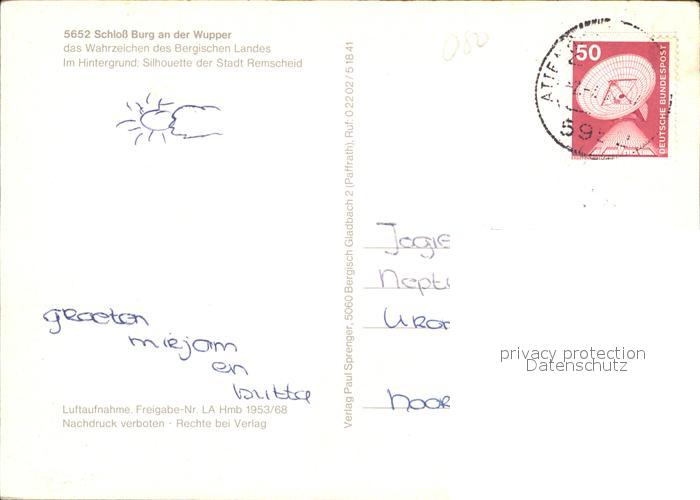 5652 Schloß Burg an der Wupper
das Wahrzeichen des Bergischen Landes
Im Hintergrund: Silhouette der Stadt Remscheid
080
50
DEUTSCHE BUNDESPOST
Verlag Paul Sprenger, 5060 Bergisch Gladbach 2 (Paffrath), Ruf: 0 22 02 / 5 18 41
groeten
mirjam
en
britta
Luftaufnahme. Freigabe-Nr. LA Hmb 1953/68
Nachdruck verboten · Rechte bei Verlag
privacy protection
Datenschutz